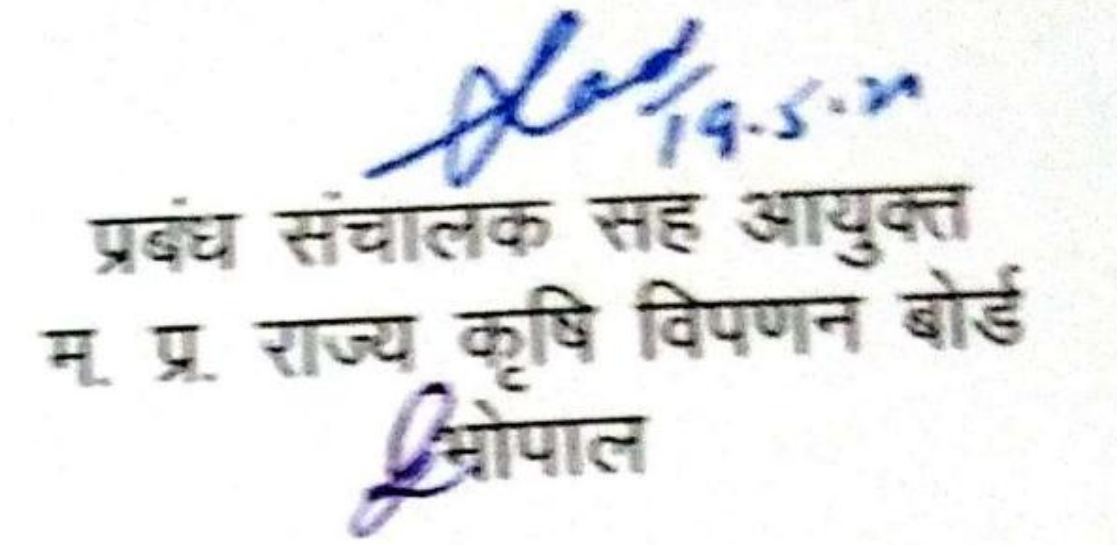 19.5.20
प्रबंध संचालक सह आयुक्त
म. प्र. राज्य कृषि विपणन बोर्ड
भोपाल